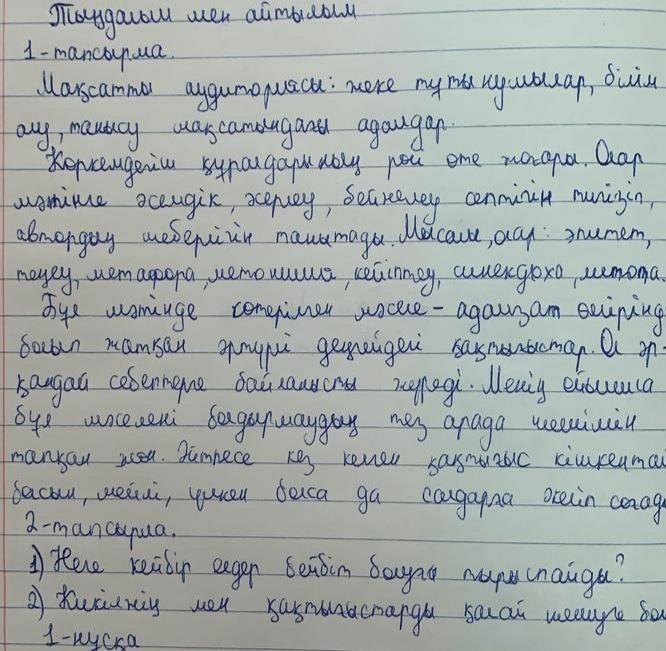 Тыңдалым мен айтылым
1-тапсырма.
Мақсатты аудиториясы: жеке тұтынушылар, білім
алу, танысу мақсатындағы адамдар.
Көркемдегіш құралдарының рөлі өте жоғары. Олар
мәтінге әсемдік, әрлеу, бейнелеу септігін тигізіп,
автордың шеберлігін танытады. Мысалы, олар: эпитет,
теңеу, метафора, метонимия, кейіптеу, синекдоха, литота.
Бұл мәтінде көтерілген мәселе - адамзат өмірінд
болып жатқан әртүрлі деңгейдегі қақтығыстар. Ол әр-
қандай себептерге байланысты жүреді. Менің ойымша
бұл мәселені болдырмаудың тез арада шешімін
тапқан жөн. Әйтпесе кез келген қақтығыс кішкентай
басын, мейлі, үлкен болса да салдарға әкеліп соғад
2-тапсырма.
1) Неге кейбір елдер бейбіт болуға тырыспайды?
2) Кикілжің мен қақтығыстарды қалай шешуге бол
1-нұсқа